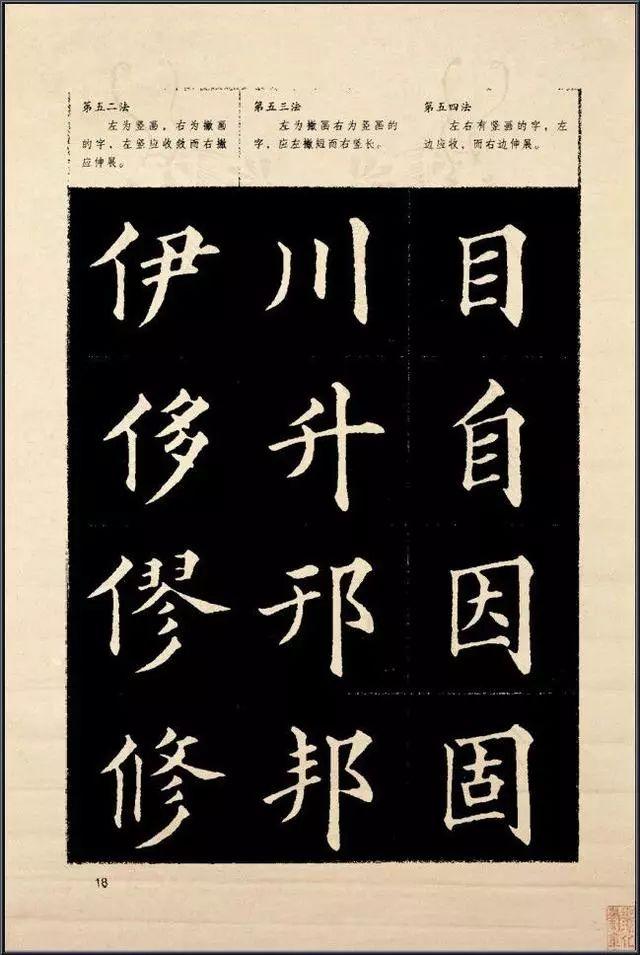 第五二法
左为竖画，右为撇画
的字，左竖应收敛而右撇
应伸展。
第五三法
左为撇画右为竖画的
字，应左撇短而右竖长。
第五四法
左右有竖画的字，左
边应收，而右边伸展。
伊
侈
僇
修
川
升
邗
邦
目
自
因
固
18